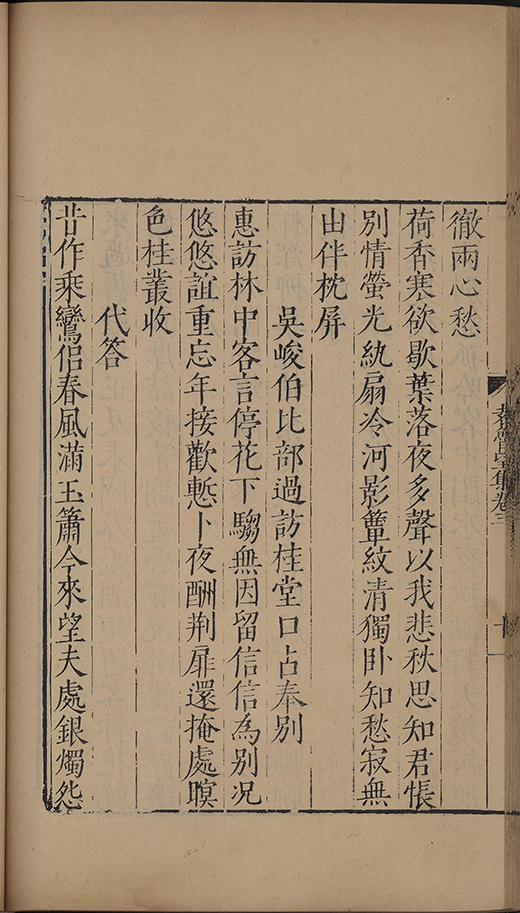 徹兩心愁
荷香寒欲歇葉落夜多聲以我悲秋思知君悵
別情螢光紈扇冷河影簟紋清獨臥知愁寂無
由伴枕屏
吳峻伯比部過訪桂堂口占奉別
惠訪林中客言停花下騶無因留信信為別况
悠悠誼重忘年接歡慙卜夜酬荆扉還掩處暝
色桂叢收
代答
昔作乘鸞侶春風滿玉簫今來望夫處銀燭怨
集卷三
十一